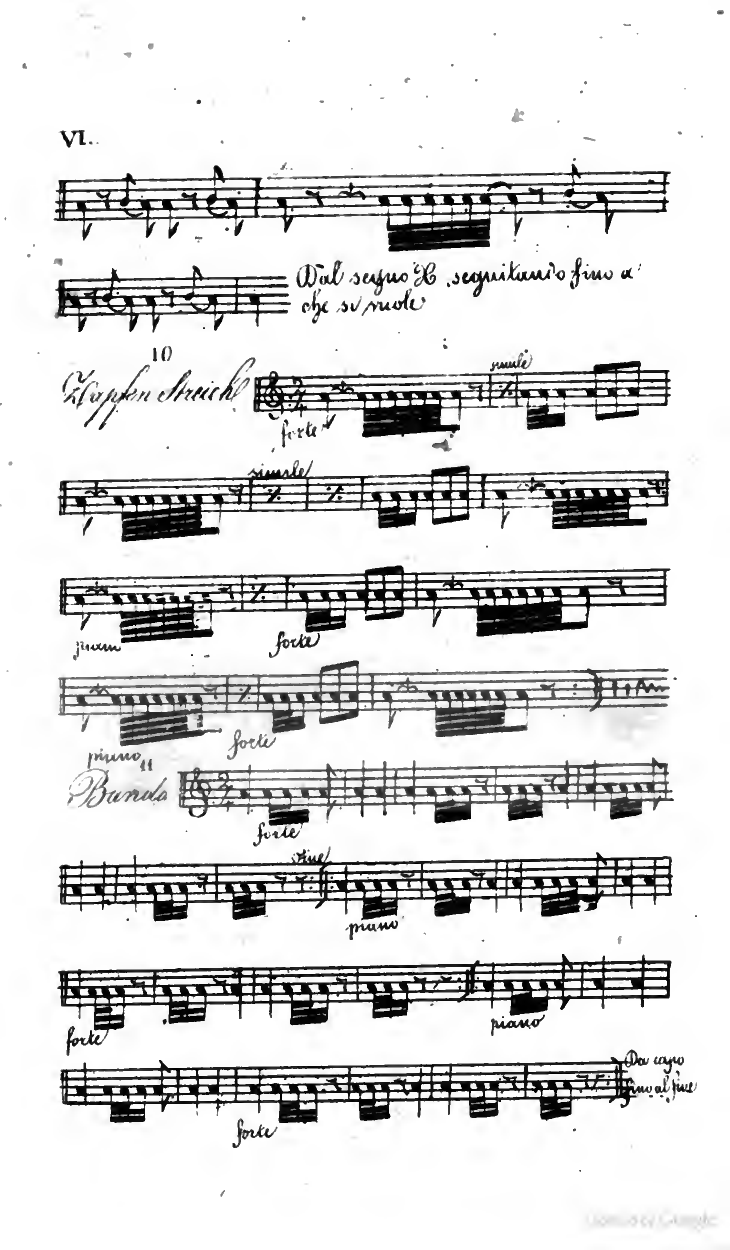 VI.
Dal segno seguitando fino a
che si vuole
10
Zapfen Streich
simile
forte
simile
piano
forte
piano
forte
11
Banda
forte
fine
piano
forte
piano
Da capo
fino al fine
forte